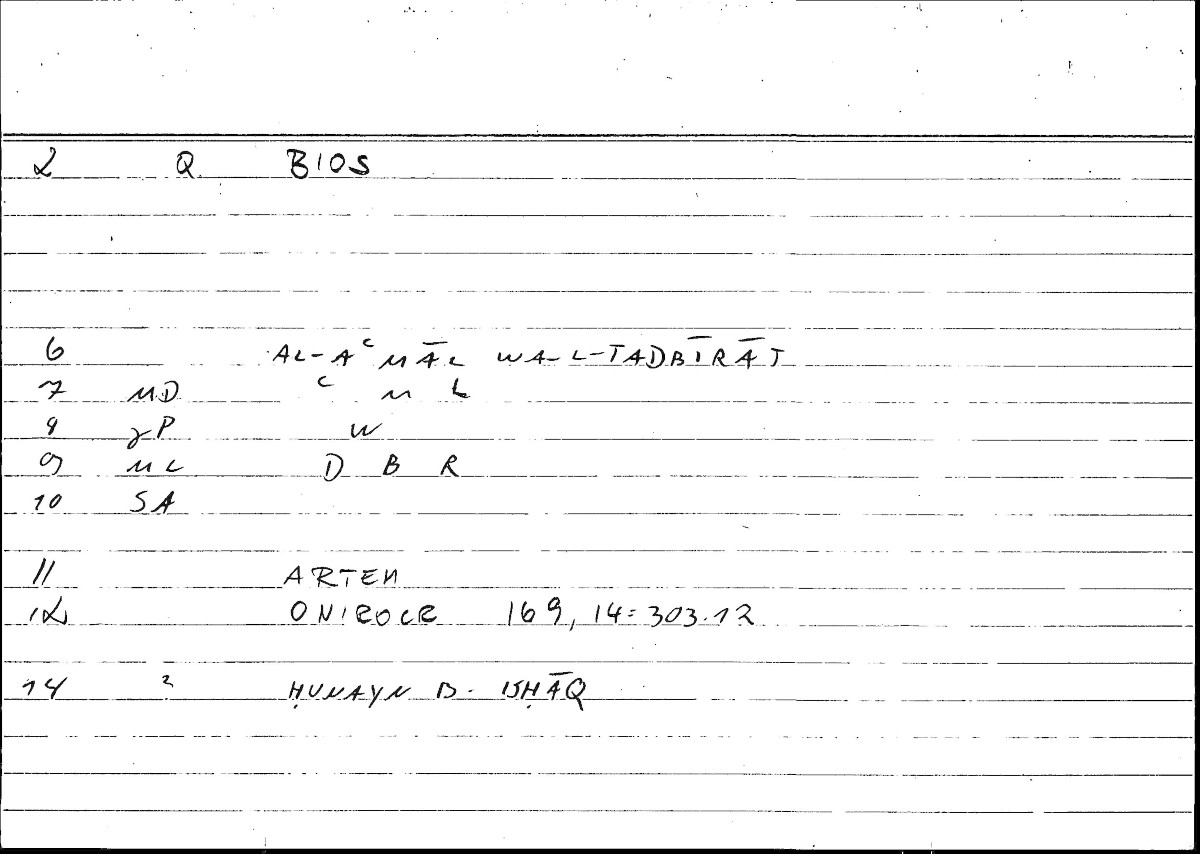 2 Q BIOS
6 AL-AʿMĀL WA-L-TADBĪRĀT
7 MD ʿ M L
8 γP W
9 ML D B R
10 SA
11 ARTEM
12 ONIROCR 169, 14 = 303.12
14 2 ḤUNAYN B. ISḤĀQ